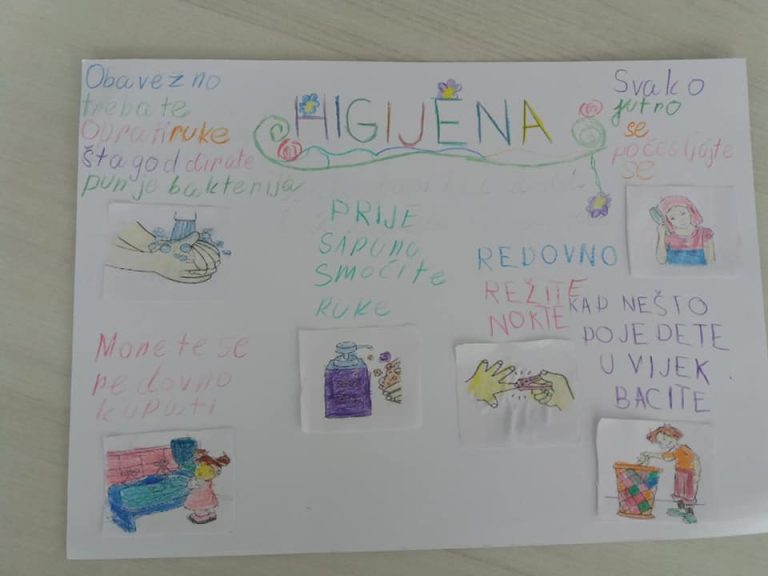 HIGIJENA
Obavezno
trebate
Oprati ruke
šta god dirate
pun je bakterija
PRIJE
SAPUNA
SMOČITE
RUKE
REDOVNO
REŽITE
NOKTE
Svako
jutro
se
počešljajte
se
KAD NEŠTO
POJEDETE
UVIJEK
BACITE
Morete se
redovno
kupati